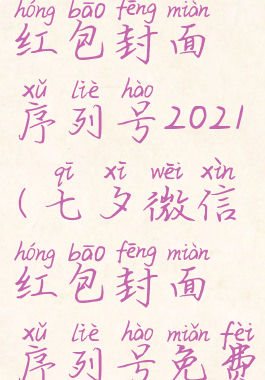 hóng bāo fēng miàn
红包封面
xǔ liè hào
序列号2021
qī xī wēi xìn
(七夕微信
hóng bāo fēng miàn
红包封面
xǔ liè hào miǎn fèi
序列号免费